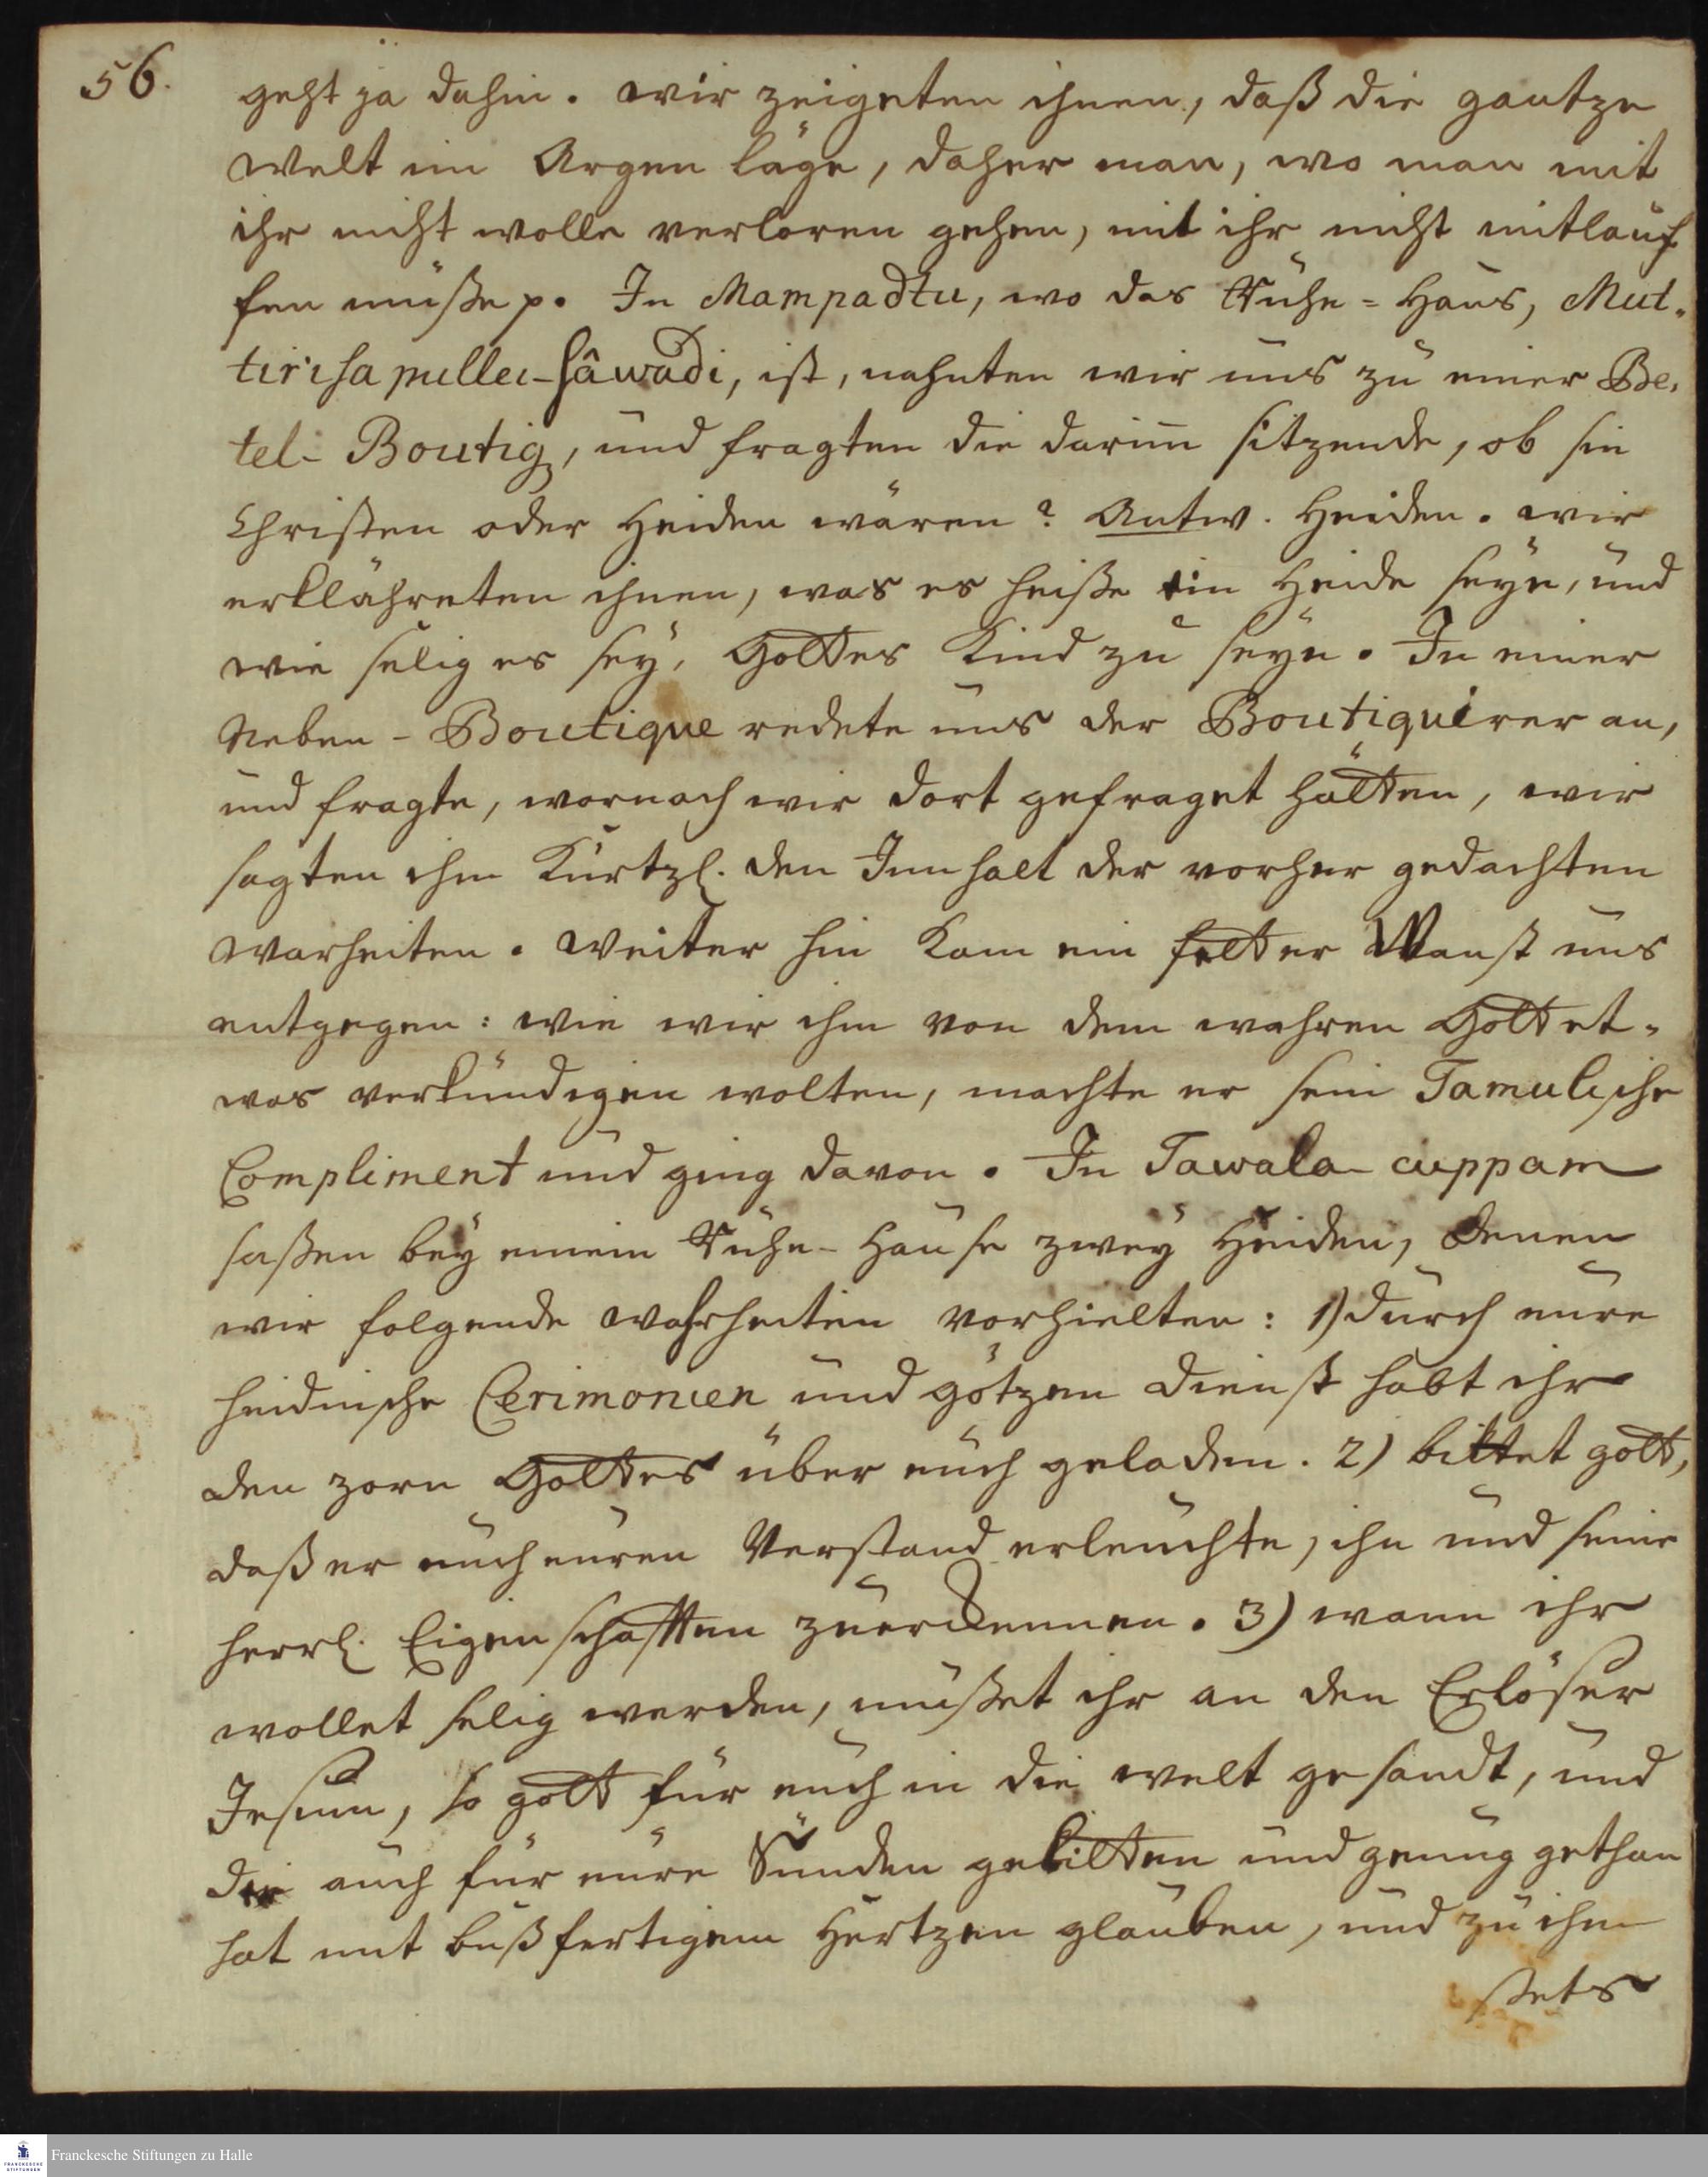 56.
geht ja dahin. wir zeigeten ihnen, daß die gantze
Welt im Argen läge, daher man, wo man mit
ihr nicht wolle verloren gehen, mit ihr nicht mitlauf
fen müße p. In Mampadtu, wo das Ruhe-Haus, Mut-
tirisapullei-Sâwadi, ist, nahnten wir uns zu einer Be-
tel-Boutig, und fragten die darinn sitzende, ob sie
Christen oder Heiden wären? Antw. Heiden. wir
erklähreten ihnen, was es heiße ein Heide seÿn, und
wie selig es seÿ, Gottes Kind zu seÿn. In einer
Neben-Boutique redete uns der Boutiquirer an,
und fragte, wornach wir dort gefraget hätten, wir
sagten ihm Kürtzl. den Innhalt der vorher gedachten
Warheiten. Weiter hin kam ein fetter Wanst uns
entgegen: wie wir ihm von dem wahren Gott et-
was verkündigen wolten, machte er sein Tamulische
Compliment und ging davon. In Tawala-cuppam
saßen beÿ einem Ruhe-Hause zweÿ Heiden, denen
wir folgende Wahrheiten vorhielten: 1) durch eure
heidnische Cerimonien und götzen dienst habt ihr
den zorn Gottes über euch geladen. 2) bittet gott,
daß er euch euren Verstand erleuchte, ihn und seine
herrl. Eigenschafften zuerkennen. 3) wann ihr
wollet selig werden, müßet ihr an den Erlöser
Jesum, so gott für euch in die welt gesandt, und
der auch für eure Sünden gelitten und genug gethan
hat mit bußfertigem Hertzen glauben, und zu ihm
stets
Franckesche Stiftungen zu Halle
FRANCKESCHE
STIFTUNGEN